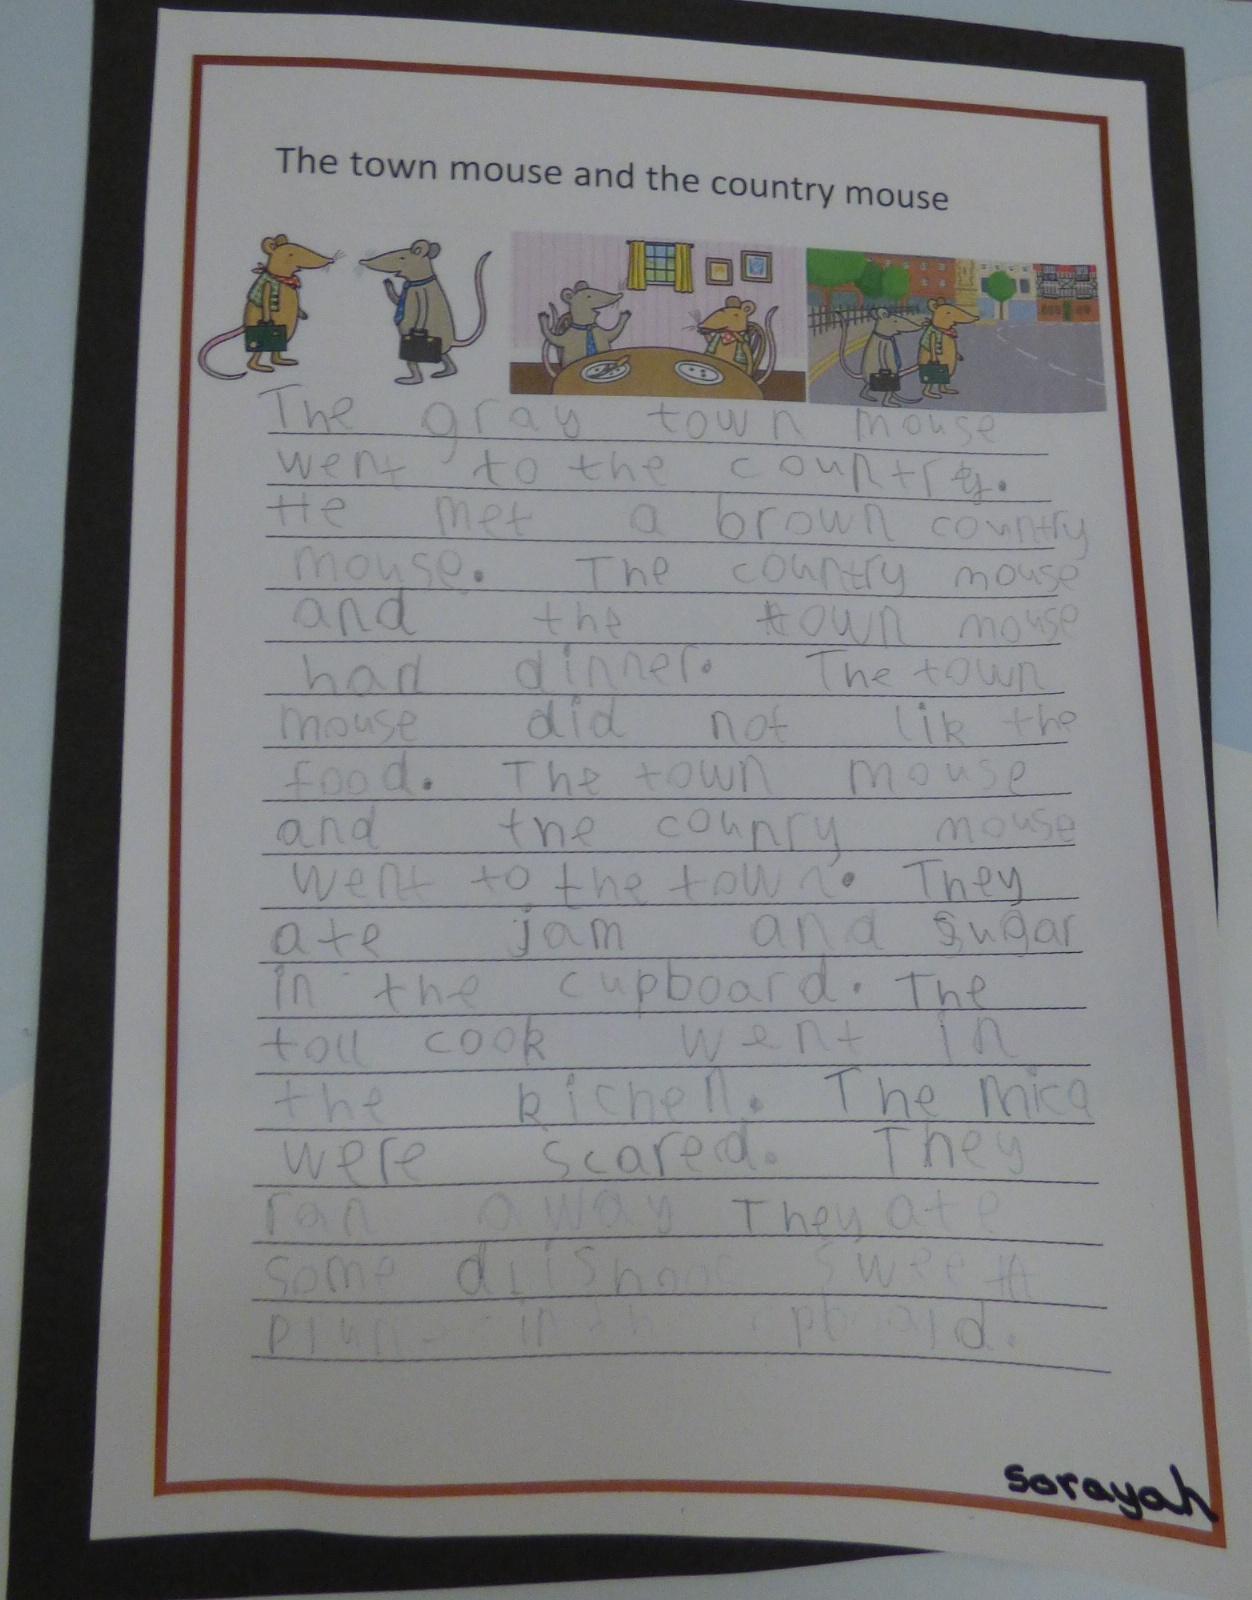 The town mouse and the country mouse
The gray town mouse
went to the country.
He met a brown country
mouse. The country mouse
and the town mouse
had dinner. The town
mouse did not lik the
food. The town mouse
and the counry mouse
went to the town. They
ate jam and sugar
in the cupboard. The
tall cook went in
the kichen. The mica
were scared. They
ran away They ate
some
in
sorayah